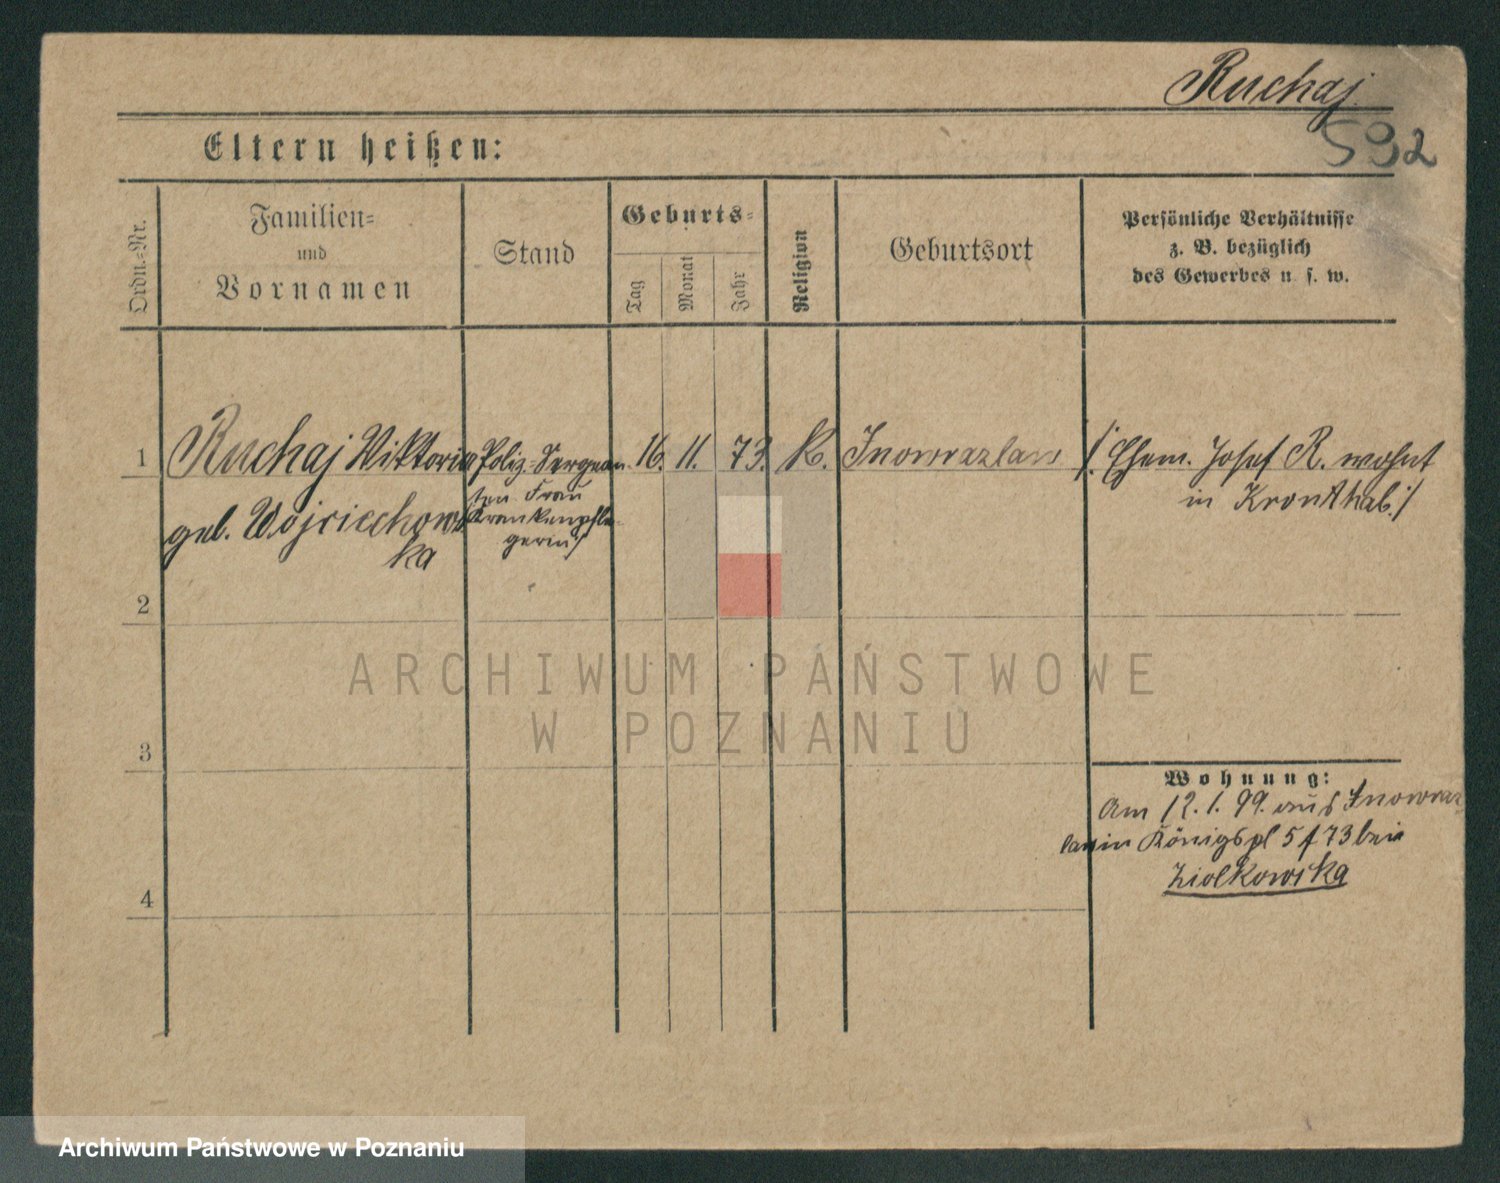 Ruchaj
592
Eltern heißen:
Ordn.-Nr.
Familien-
und
Vornamen
Stand
Geburts-
Tag
Monat
Jahr
Religion
Geburtsort
Persönliche Verhältnisse
z. B. bezüglich
des Gewerbes u. s. w.
1
Ruchaj Viktoria
geb. Wojciechows
ka
Poliz.-Sergean
ten Frau
Krankenpfle-
gerin/
16.
11.
73.
K.
Inowrazlaw
/. Ehem. Josef R. wohnt
in Kronthal ./
2
3
4
Wohnung:
Am 12.1.99. aus Inowraz
law in Königspl 5 f 73 bei
Ziolkowska
ARCHIWUM PAŃSTWOWE
W POZNANIU
Archiwum Państwowe w Poznaniu